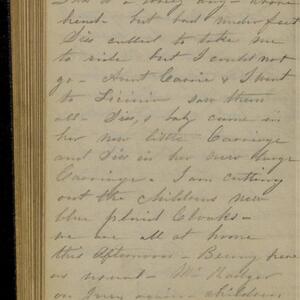 head - but bad under feet
Dies called to take me
to ride but I could not
go - Aunt Carrie & I went
to Licinia saw them
all - Dies,s baby came in
her new little Carriage
and Dies in her own large
Carriage - I am cutting
out the childrens new
blue plaid Cloaks -
we are all at home
this Afternoon - Benny here
as usual - Mr
children